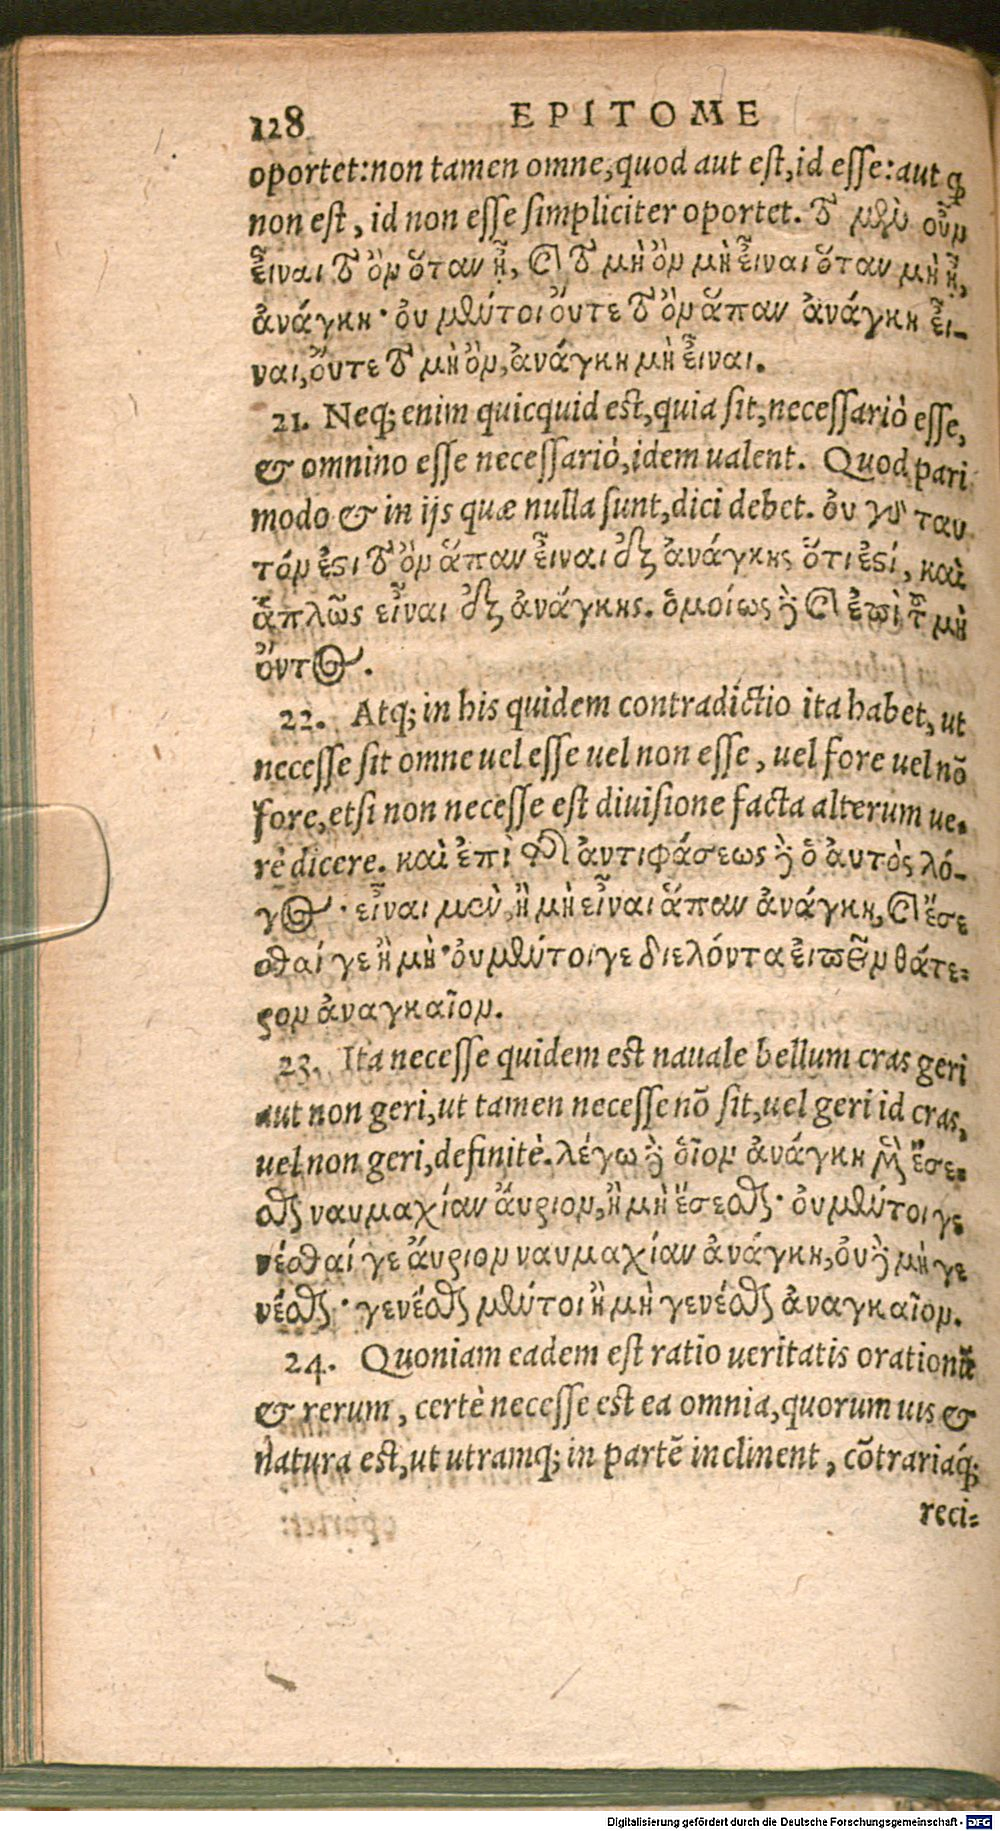 128 EPITOME
oportet:non tamen omne,quod aut est,id esse:aut ꝙ
non est, id non esse simpliciter oportet. τὸ μὲν οὖν
εἶναι τὸ ὂν ὅταν ᾖ, καὶ τὸ μὴ ὂν μὴ εἶναι ὅταν μὴ ᾖ,
ἀνάγκη· οὐ μέντοι οὔτε τὸ ὂν ἅπαν ἀνάγκη εἶ-
ναι,οὔτε τὸ μὴ ὂν,ἀνάγκη μὴ εἶναι.
21. Neq; enim quicquid est,quia sit,necessariò esse,
& omnino esse necessariò,idem ualent. Quod pari
modo & in ijs quæ nulla sunt,dici debet. οὐ γὰρ ταυ
τόν ἐϛι τὸ ὂν ἅπαν εἶναι ἐξ ἀνάγκης ὅτι ἐϛί, καὶ
ἁπλῶς εἶναι ἐξ ἀνάγκης. ὁμοίως δὲ καὶ ἐπὶ τοῦ μὴ
ὄντος.
22. Atq; in his quidem contradictio ita habet, ut
necesse sit omne uel esse uel non esse, uel fore uel nõ
fore,etsi non necesse est diuisione facta alterum ue-
rè dicere. καὶ ἐπὶ τῆς ἀντιφάσεως δὲ ὁ ἀυτὸς λό-
γος· εἶναι μὲν,ἢ μὴ εἶναι ἅπαν ἀνάγκη, καὶ ἔσε
σθαί γε ἢ μὴ·οὐ μέντοι γε διελόντα εἰπεῖν θάτε-
ρον ἀναγκαῖον.
23. Ita necesse quidem est nauale bellum cras geri
aut non geri,ut tamen necesse nõ sit,uel geri id cras,
uel non geri,definitè. λέγω δὲ ὅιον ἀνάγκη μὲν ἔσε-
σθαι ναυμαχίαν ἄυριον,ἢ μὴ ἔσεσθαι· οὐ μέντοι γε
νέσθαί γε ἄυριον ναυμαχίαν ἀνάγκη,οὐδὲ μὴ γε
νέσθαι· γενέσθαι μέντοι ἢ μὴ γενέσθαι ἀναγκαῖον.
24. Quoniam eadem est ratio ueritatis orationũ
& rerum, certè necesse est ea omnia,quorum uis &
natura est,ut utramq; in partẽ inclinent, cõtrariáq;
reci-
Digitalisierung gefördert durch die Deutsche Forschungsgemeinschaft - DFG